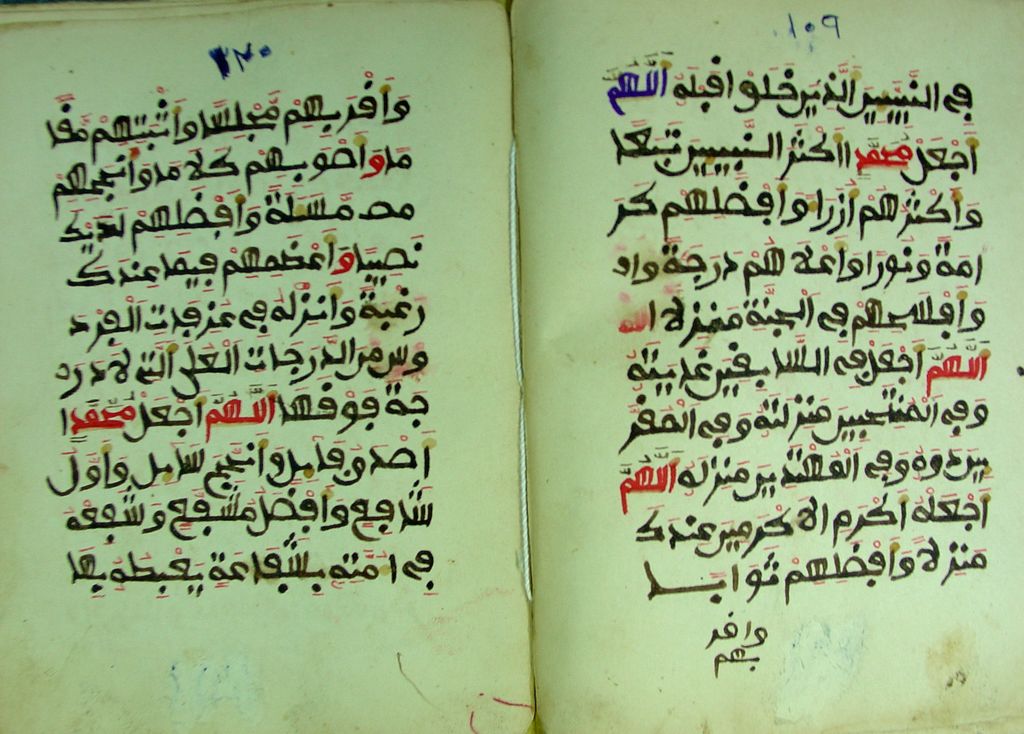 ١٠٩
في النبيين الذين خلوا قبله اللهم
اجعل محمد ااكثر النبيين تبعا
واكثرهم ازرا وافضلهم كر
امة ونورا واعلاهم درجة واو
وافسحهم في الجنة منزلا الله
اللهم اجعل في السابقين غايته
وفي المنتجبين منزلته وفي المقر
بين داره وفي المصطفين منزله اللهم
اجعله اكرم الاكرمين عندك
منزلا وافضلهم ثوابا
واقر
بهم
واقربهم مجلسا واثبتهم مقا
ما واصوبهم كلاما وانجحهم
مسئلة وافضلهم لديك
نصيبا واعظمهم فيما عندك
رغبة وانزله في غرفات الفرد
وس من الدرجات العلى التي لا در
جة فوقها اللهم اجعل محمدا
اصدق قايل وانجح سايل واول
شافع وافضل مشفع وشفعه
في امته بشفاعة يغبطه بها